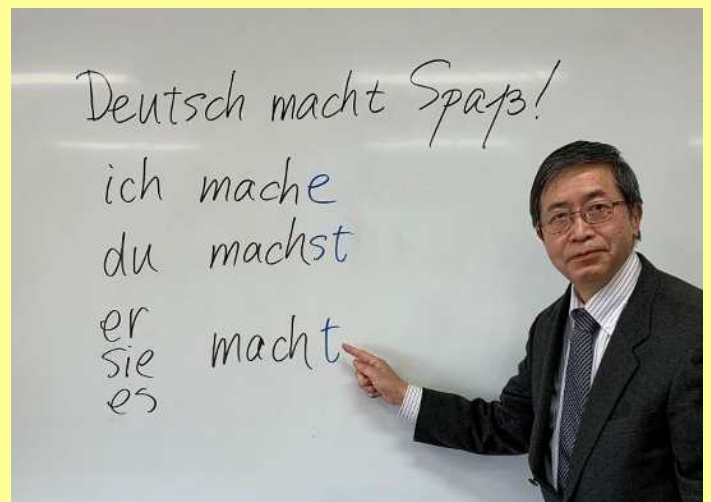 Deutsch macht Spaß!
ich mache
du machst
er
sie macht
es